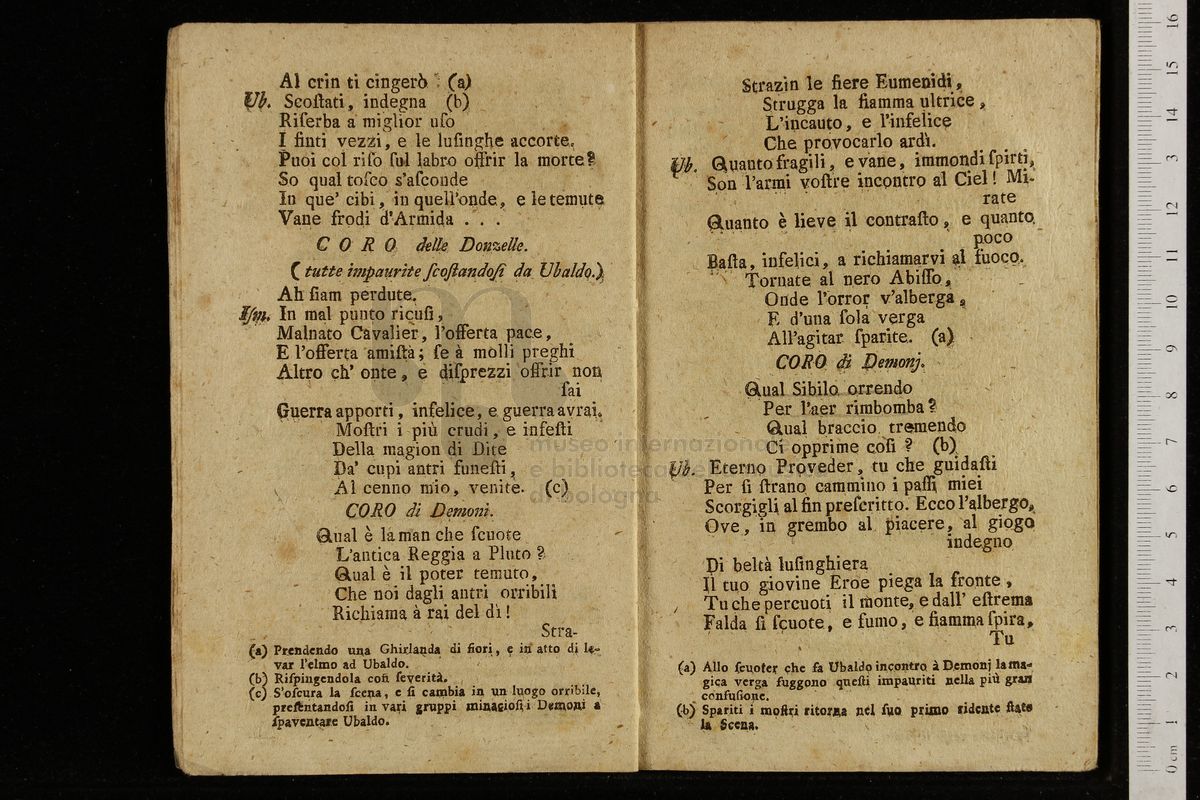 Al crin ti cingerò (a)
Ub. Scoſtati, indegna (b)
Riſerba a miglior uſo
I finti vezzi, e le luſinghe accorte.
Puoi col riſo ſul labro offrir la morte?
So qual toſco s'aſconde
In que' cibi, in quell'onde, e le temute
Vane frodi d'Armida . . .
CORO delle Donzelle.
( tutte impaurite ſcoſtandoſi da Ubaldo.)
Ah ſiam perdute.
Iſm. In mal punto ricuſi,
Malnato Cavalier, l'offerta pace,
E l'offerta amiſtà; ſe à molli preghi
Altro ch' onte, e diſprezzi offrir non
ſai
Guerra apporti, infelice, e guerra avrai.
Moſtri i più crudi, e infeſti
Della magion di Dite
Da' cupi antri funeſti,
Al cenno mio, venite. (c)
CORO di Demoni.
Qual è la man che ſcuote
L'antica Reggia a Pluto?
Qual è il poter temuto,
Che noi dagli antri orribili
Richiama à rai del dì!
Stra-
(a) Prendendo una Ghirlanda di fiori, e in atto di le-
var l'elmo ad Ubaldo.
(b) Riſpingendola con ſeverità.
(c) S'oſcura la ſcena, e ſi cambia in un luogo orribile,
preſentandoſi in vari gruppi minacioſi i Demoni a
ſpaventare Ubaldo.
Strazin le fiere Eumenidi,
Strugga la fiamma ultrice,
L'incauto, e l'infelice
Che provocarlo ardì.
Ub. Quanto fragili, e vane, immondi ſpirti,
Son l'armi voſtre incontro al Ciel! Mi-
rate
Quanto è lieve il contraſto, e quanto
poco
Baſta, infelici, a richiamarvi al fuoco.
Tornate al nero Abiſſo,
Onde l'orror v'alberga,
E d'una ſola verga
All'agitar ſparite. (a)
CORO di Demonj.
Qual Sibilo orrendo
Per l'aer rimbomba?
Qual braccio tremendo
Ci opprime coſi? (b)
Ub. Eterno Proveder, tu che guidaſti
Per ſi ſtrano cammino i paſſi miei
Scorgigli al fin preſcritto. Ecco l'albergo,
Ove, in grembo al piacere, al giogo
indegno
Di beltà luſinghiera
Il tuo giovine Eroe piega la fronte,
Tu che percuoti il monte, e dall' eſtrema
Falda ſi ſcuote, e fumo, e fiamma ſpira,
Tu
(a) Allo ſcuoter che fa Ubaldo incontro à Demonj la ma-
gica verga fuggono queſti impauriti nella più gran
confuſione.
(b) Spariti i moſtri ritorna nel ſuo primo ridente ſtato
la Scena.
museo internazionale
e biblioteca della musica
di bologna
0 cm 1 2 3 4 5 6 7 8 9 10 11 12 13 14 15 16